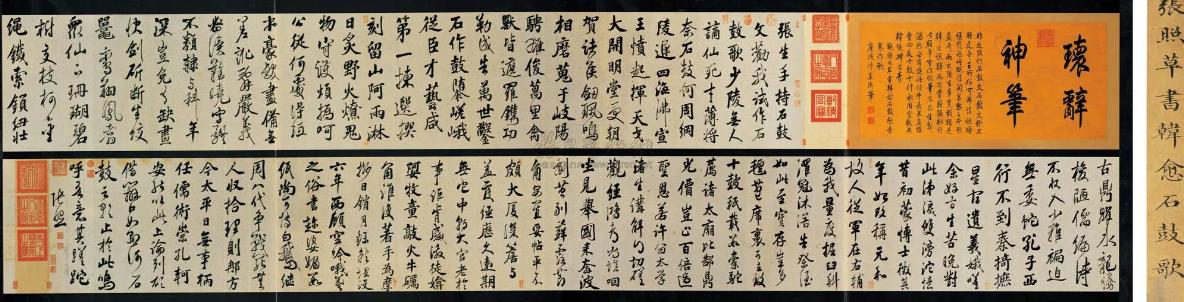 張照草書韓愈石鼓歌
瓌辭
神筆
張生手持石鼓
文勸我試作石
鼓歌少陵無人
謫仙死才薄將
奈石鼓何周綱
陵遲四海沸宣
王憤起揮天戈
大開明堂受朝
賀諸侯劍珮鳴
相磨蒐于岐陽
騁雄俊萬里禽
獸皆遮羅鐫功
勒成告萬世鑿
石作鼓隳嵯峨
從臣才藝咸
第一揀選撰
刻留山阿雨淋
日炙野火燎鬼
物守護煩撝呵
公從何處得紙
本毫髮盡備無
差訛辭嚴義
密讀難曉字體
不類隸與科年
深豈免有缺畫
快劍斫斷生蛟
鼉鸞翔鳳翥
眾仙下珊瑚碧
樹交枝柯金
繩鐵索鎖紐壯
古鼎躍水龍騰
梭陋儒編詩
不收入二雅褊迫
無委蛇孔子西
行不到秦掎摭
星宿遺羲娥嗟
余好古生苦晚對
此涕淚雙滂沱憶
昔初蒙博士徵其
年始改稱元和
故人從軍在右輔
為我量度掘臼科
濯冠沐浴告祭酒
如此至寶存豈多
氈苞席裹可立致
十鼓祇載數駱駝
薦諸太廟比郜鼎
光價豈止百倍過
聖恩若許留太學
諸生講解得切磋
觀經鴻都尚填咽
坐見舉國來奔波
剜苔剔蘚露節
角安置妥帖平不
頗大廈深簷與
蓋覆經歷久遠期
無佗中朝大官老於
事詎肯感激徒媕
婀牧童敲火牛礪
角誰復著手為摩
挲日銷月鑠就埋沒
六年西顧空吟哦羲
之俗書趁姿媚數
紙尚可博白鵝繼
周八代爭戰罷無
人收拾理則那方
今太平日無事柄
任儒術崇孔軻
安能以此上論列願
借辯口如懸河石
鼓之歌止於此嗚
呼吾意其蹉跎
張照